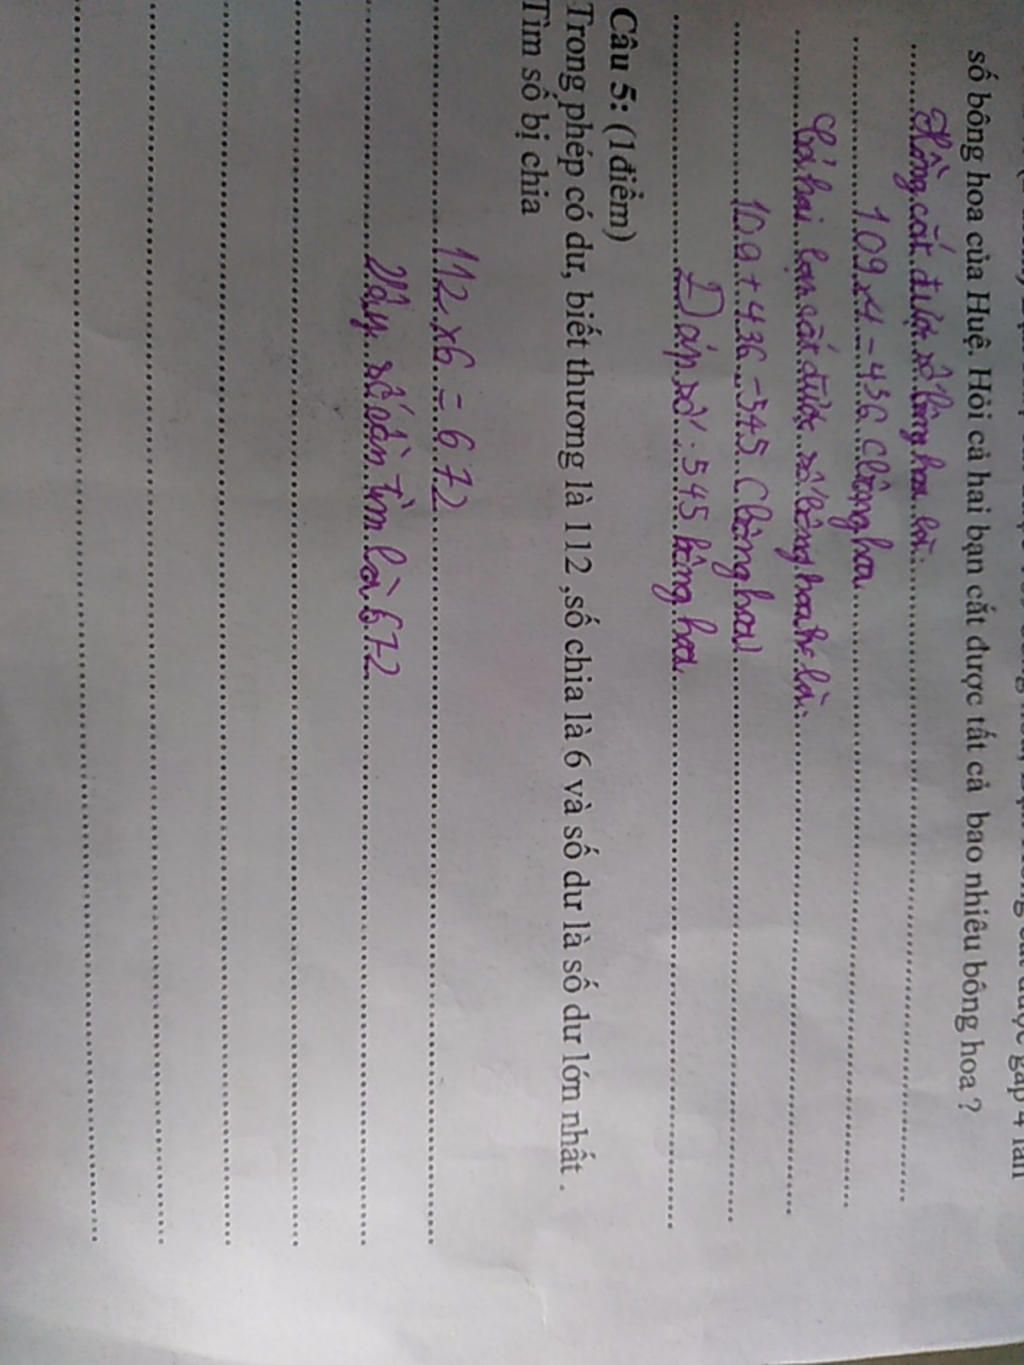 gấp 4 lần
số bông hoa của Huệ. Hỏi cả hai bạn cắt được tất cả bao nhiêu bông hoa ?
Hồng cắt được số bông hoa là:
109 x 4 = 436 (bông hoa
Cả hai bạn cắt được số bông hoa là:
109 + 436 = 545 (bông hoa)
Đáp số: 545 bông hoa
Câu 5: (1điểm)
Trong phép có dư, biết thương là 112 ,số chia là 6 và số dư là số dư lớn nhất .
Tìm số bị chia
112 x 6 = 672
Vậy số cần tìm là 672